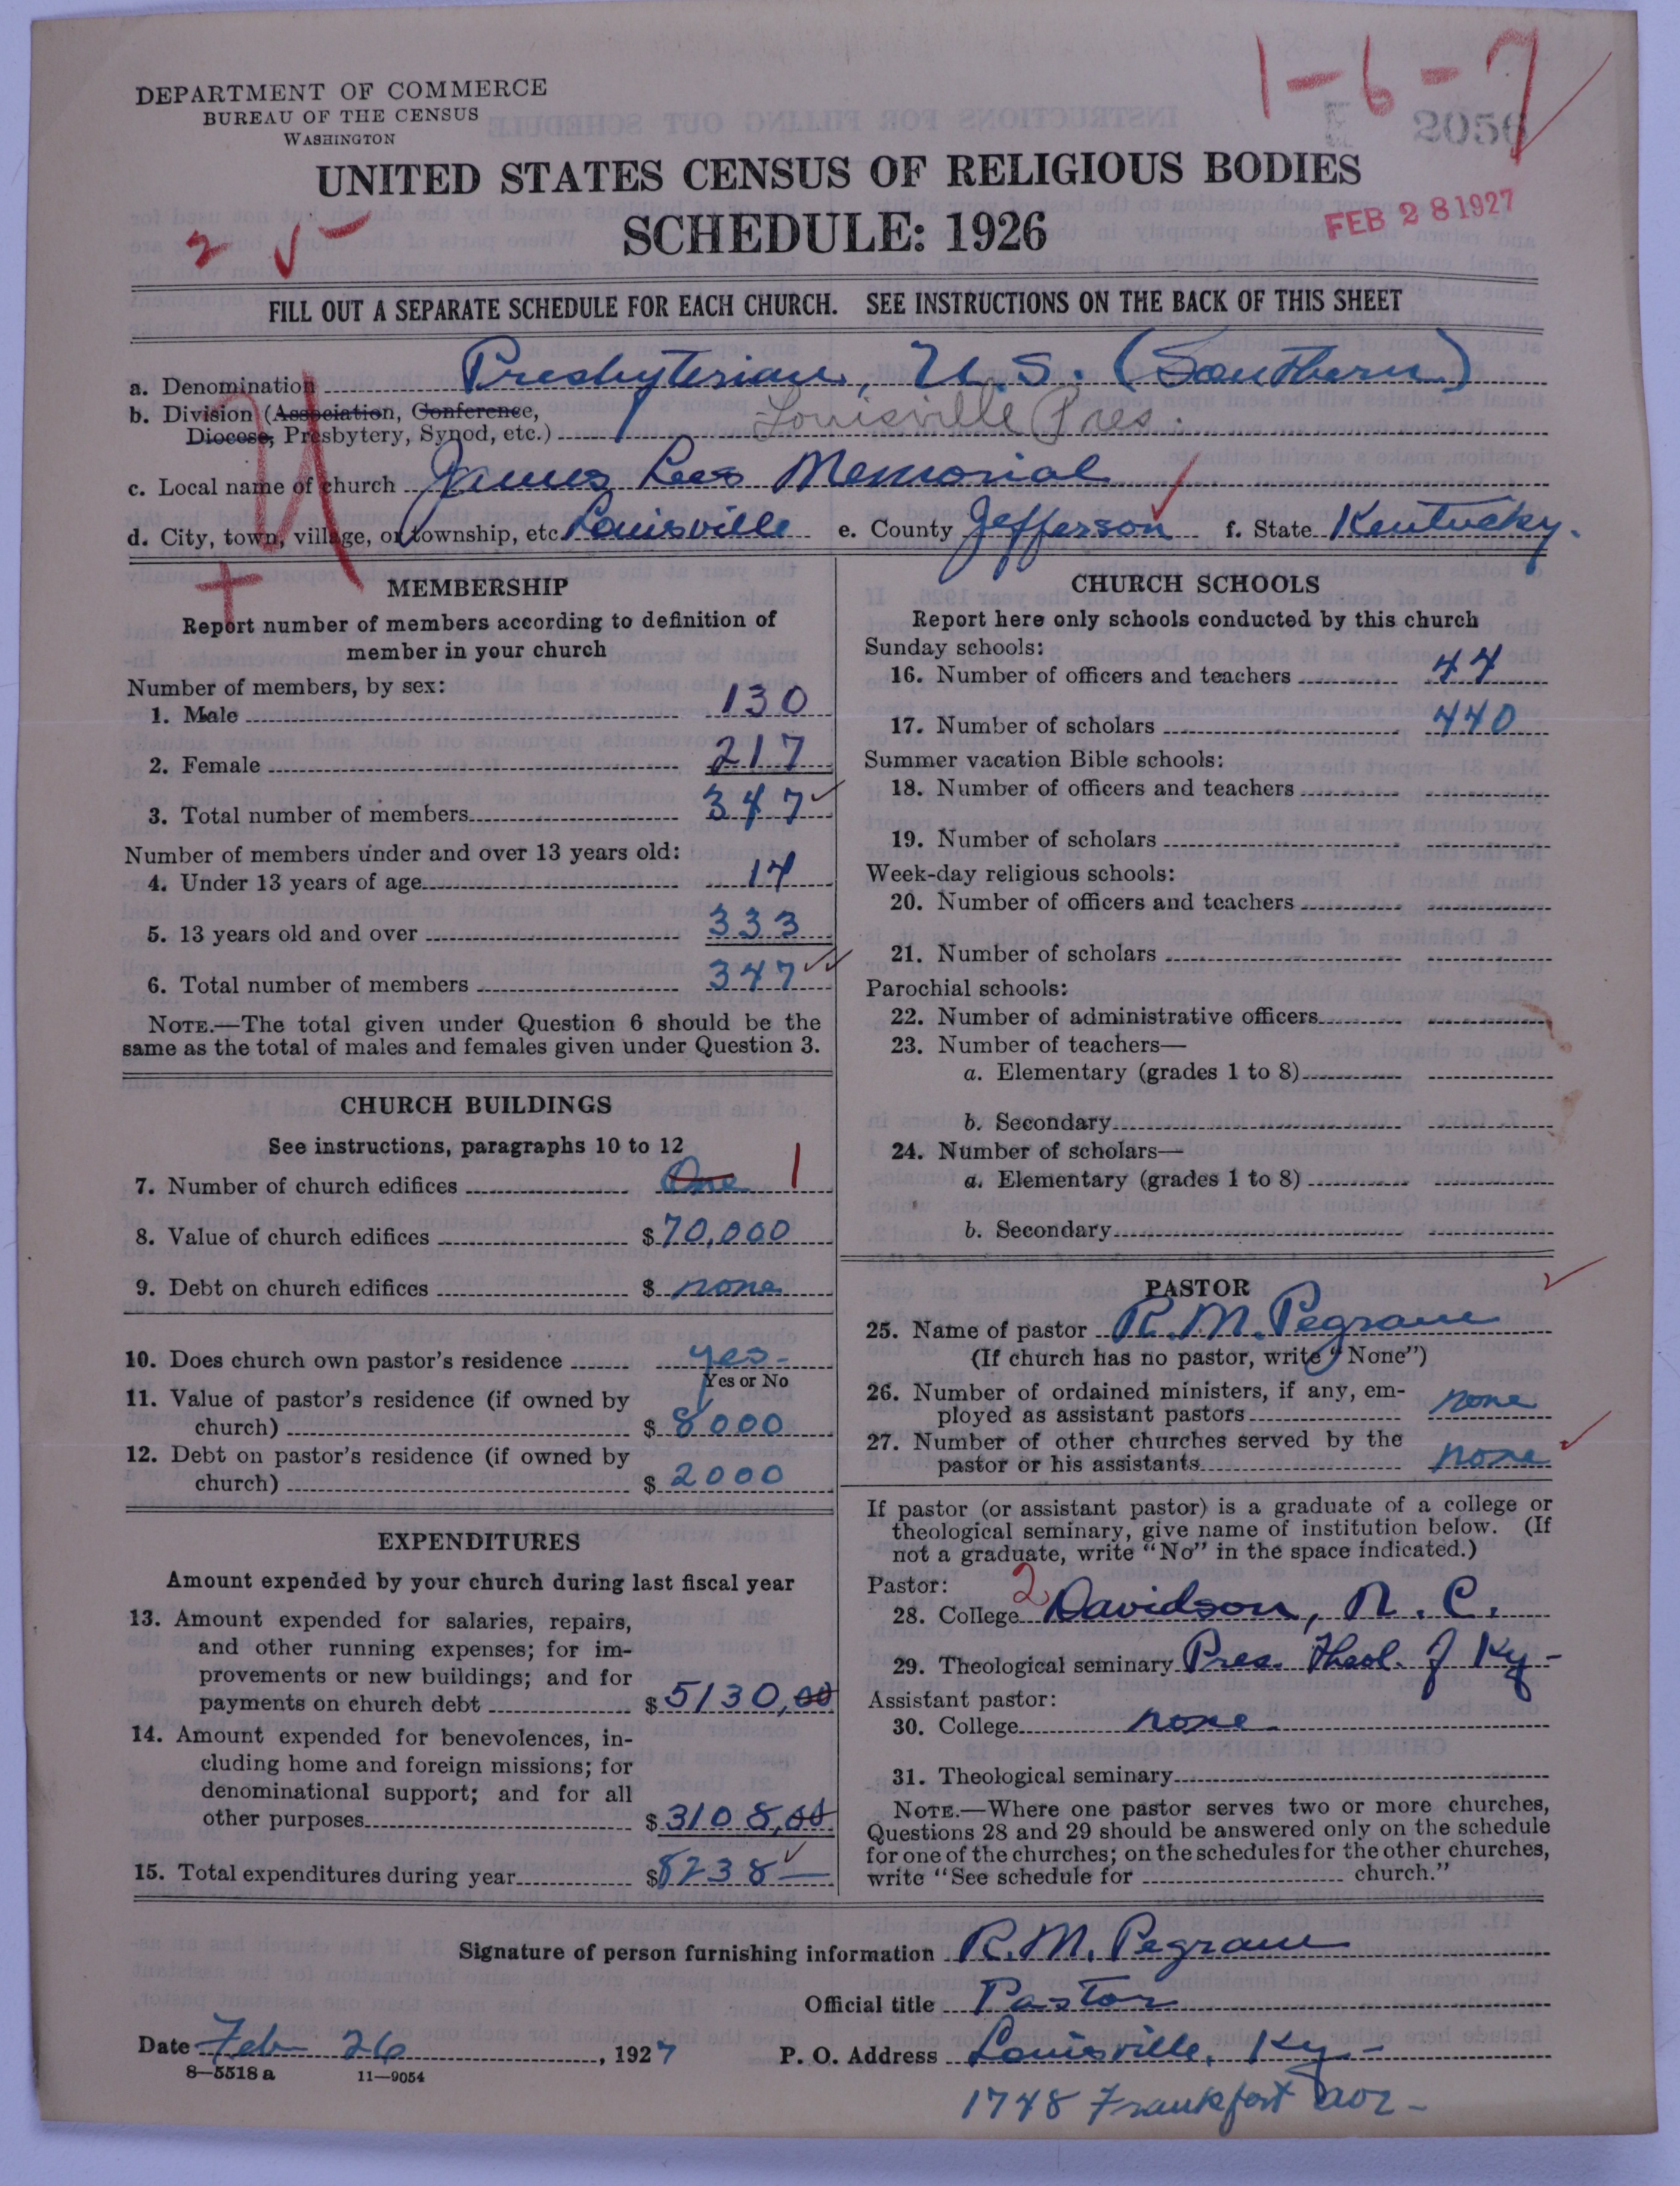 1-6-7
DEPARTMENT OF COMMERCE
BUREAU OF THE CENSUS
WASHINGTON
2056
UNITED STATES CENSUS OF RELIGIOUS BODIES
SCHEDULE: 1926
FEB 28 1927
2
FILL OUT A SEPARATE SCHEDULE FOR EACH CHURCH. SEE INSTRUCTIONS ON THE BACK OF THIS SHEET
a. Denomination Presbyterian, U.S. (Southern)
b. Division (Association, Conference,
Diocese, Presbytery, Synod, etc.) Louisville Pres.
c. Local name of church James Lees Memorial
d. City, town, village, or township, etc Louisville e. County Jefferson f. State Kentucky.
MEMBERSHIP
Report number of members according to definition of
member in your church
Number of members, by sex:
1. Male 130
2. Female 217
3. Total number of members 347
Number of members under and over 13 years old:
4. Under 13 years of age 14
5. 13 years old and over 333
6. Total number of members 347
NOTE.—The total given under Question 6 should be the
same as the total of males and females given under Question 3.
CHURCH BUILDINGS
See instructions, paragraphs 10 to 12
7. Number of church edifices One 1
8. Value of church edifices $70,000
9. Debt on church edifices $ none
10. Does church own pastor's residence yes-
Yes or No
11. Value of pastor's residence (if owned by
church) $ 8000
12. Debt on pastor's residence (if owned by
church) $ 2000
EXPENDITURES
Amount expended by your church during last fiscal year
13. Amount expended for salaries, repairs,
and other running expenses; for im-
provements or new buildings; and for
payments on church debt $5130,00
14. Amount expended for benevolences, in-
cluding home and foreign missions; for
denominational support; and for all
other purposes $3108,00
15. Total expenditures during year $8238—
CHURCH SCHOOLS
Report here only schools conducted by this church
Sunday schools:
16. Number of officers and teachers 44
17. Number of scholars 440
Summer vacation Bible schools:
18. Number of officers and teachers
19. Number of scholars
Week-day religious schools:
20. Number of officers and teachers
21. Number of scholars
Parochial schools:
22. Number of administrative officers
23. Number of teachers—
a. Elementary (grades 1 to 8)
b. Secondary
24. Number of scholars—
a. Elementary (grades 1 to 8)
b. Secondary
PASTOR
25. Name of pastor R.M. Pegram
(If church has no pastor, write "None")
26. Number of ordained ministers, if any, em-
ployed as assistant pastors none
27. Number of other churches served by the
pastor or his assistants none
If pastor (or assistant pastor) is a graduate of a college or
theological seminary, give name of institution below. (If
not a graduate, write "No" in the space indicated.)
Pastor:
28. College 2 Davidson, N.C.
29. Theological seminary Pres. Theol. of Ky-
Assistant pastor:
30. College none
31. Theological seminary
NOTE.—Where one pastor serves two or more churches,
Questions 28 and 29 should be answered only on the schedule
for one of the churches; on the schedules for the other churches,
write "See schedule for church."
Signature of person furnishing information R.M. Pegram
Official title Pastor
Date Feb 26, 1927 P. O. Address Louisville, Ky-
8—5518 a 11—9054
1748 Frankfort